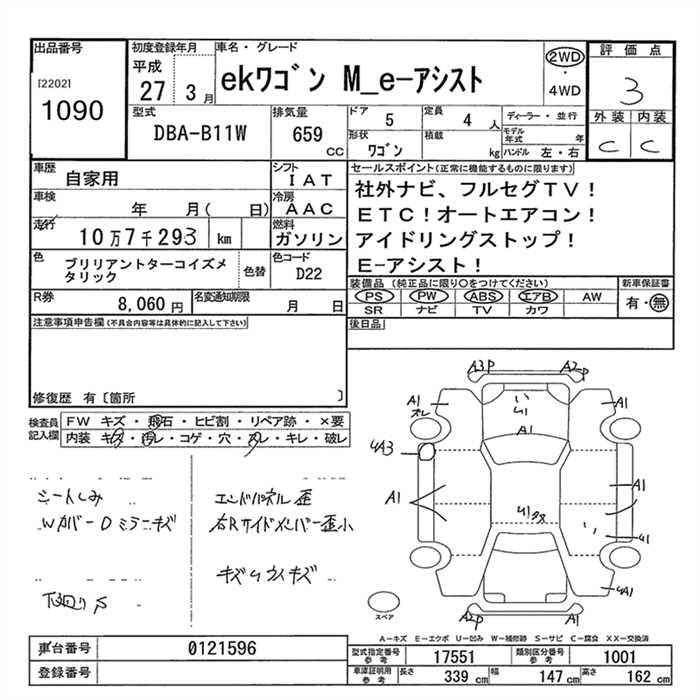 出品番号
[2202]
1090
初度登録年月
平成
27 3月
車名・グレード
ekワゴン M_e-アシスト
2WD
・
4WD
評価点
3
外装 内装
C C
型式
DBA-B11W
排気量
659
cc
ドア 5
定員 4 人
ディーラー・並行
形状
ワゴン
積載
kg
モデル年式 年
ハンドル 左・右
車歴
自家用
シフト
IAT
車検
年 月( 日)
冷房
AAC
走行
10万7千293 km
燃料
ガソリン
色
ブリリアントターコイズメタリック
色替
色コード
D22
R券
8,060円
名変通知期限
月 日
セールスポイント(正常に機能するものに限ります)
社外ナビ、フルセグTV!
ETC!オートエアコン!
アイドリングストップ!
E-アシスト!
装備品 (純正品に限り○をつけてください)
新車保証書
PS PW ABS エアB AW
有・無
SR ナビ TV カワ
後日品
注意事項申告欄(不具合内容等は具体的に記入して下さい)
修復歴 有〔箇所 〕
検査員記入欄
FW キズ・飛石・ヒビ割・リペア跡・×要
内装 キズ・汚レ・コゲ・穴・スレ・キレ・破レ
シートしみ
WカバーDミラーキズ
下廻りS
エンドパネル歪
右Rサイドメンバー歪小
キズUウイキズ
A3P A2P
A1
ズレ
A1
U1
A1
UA3
A1
A1
U1
U1
UA1
A2P A1
スペア
A-キズ E-エクボ U-凹み W-補修跡 S-サビ C-腐食 XX-交換済
車台番号
0121596
登録番号
型式指定番号
参考
17551
類別区分番号
参考
1001
車庫証明用
参考
長さ 339 cm
幅 147 cm
高さ 162 cm